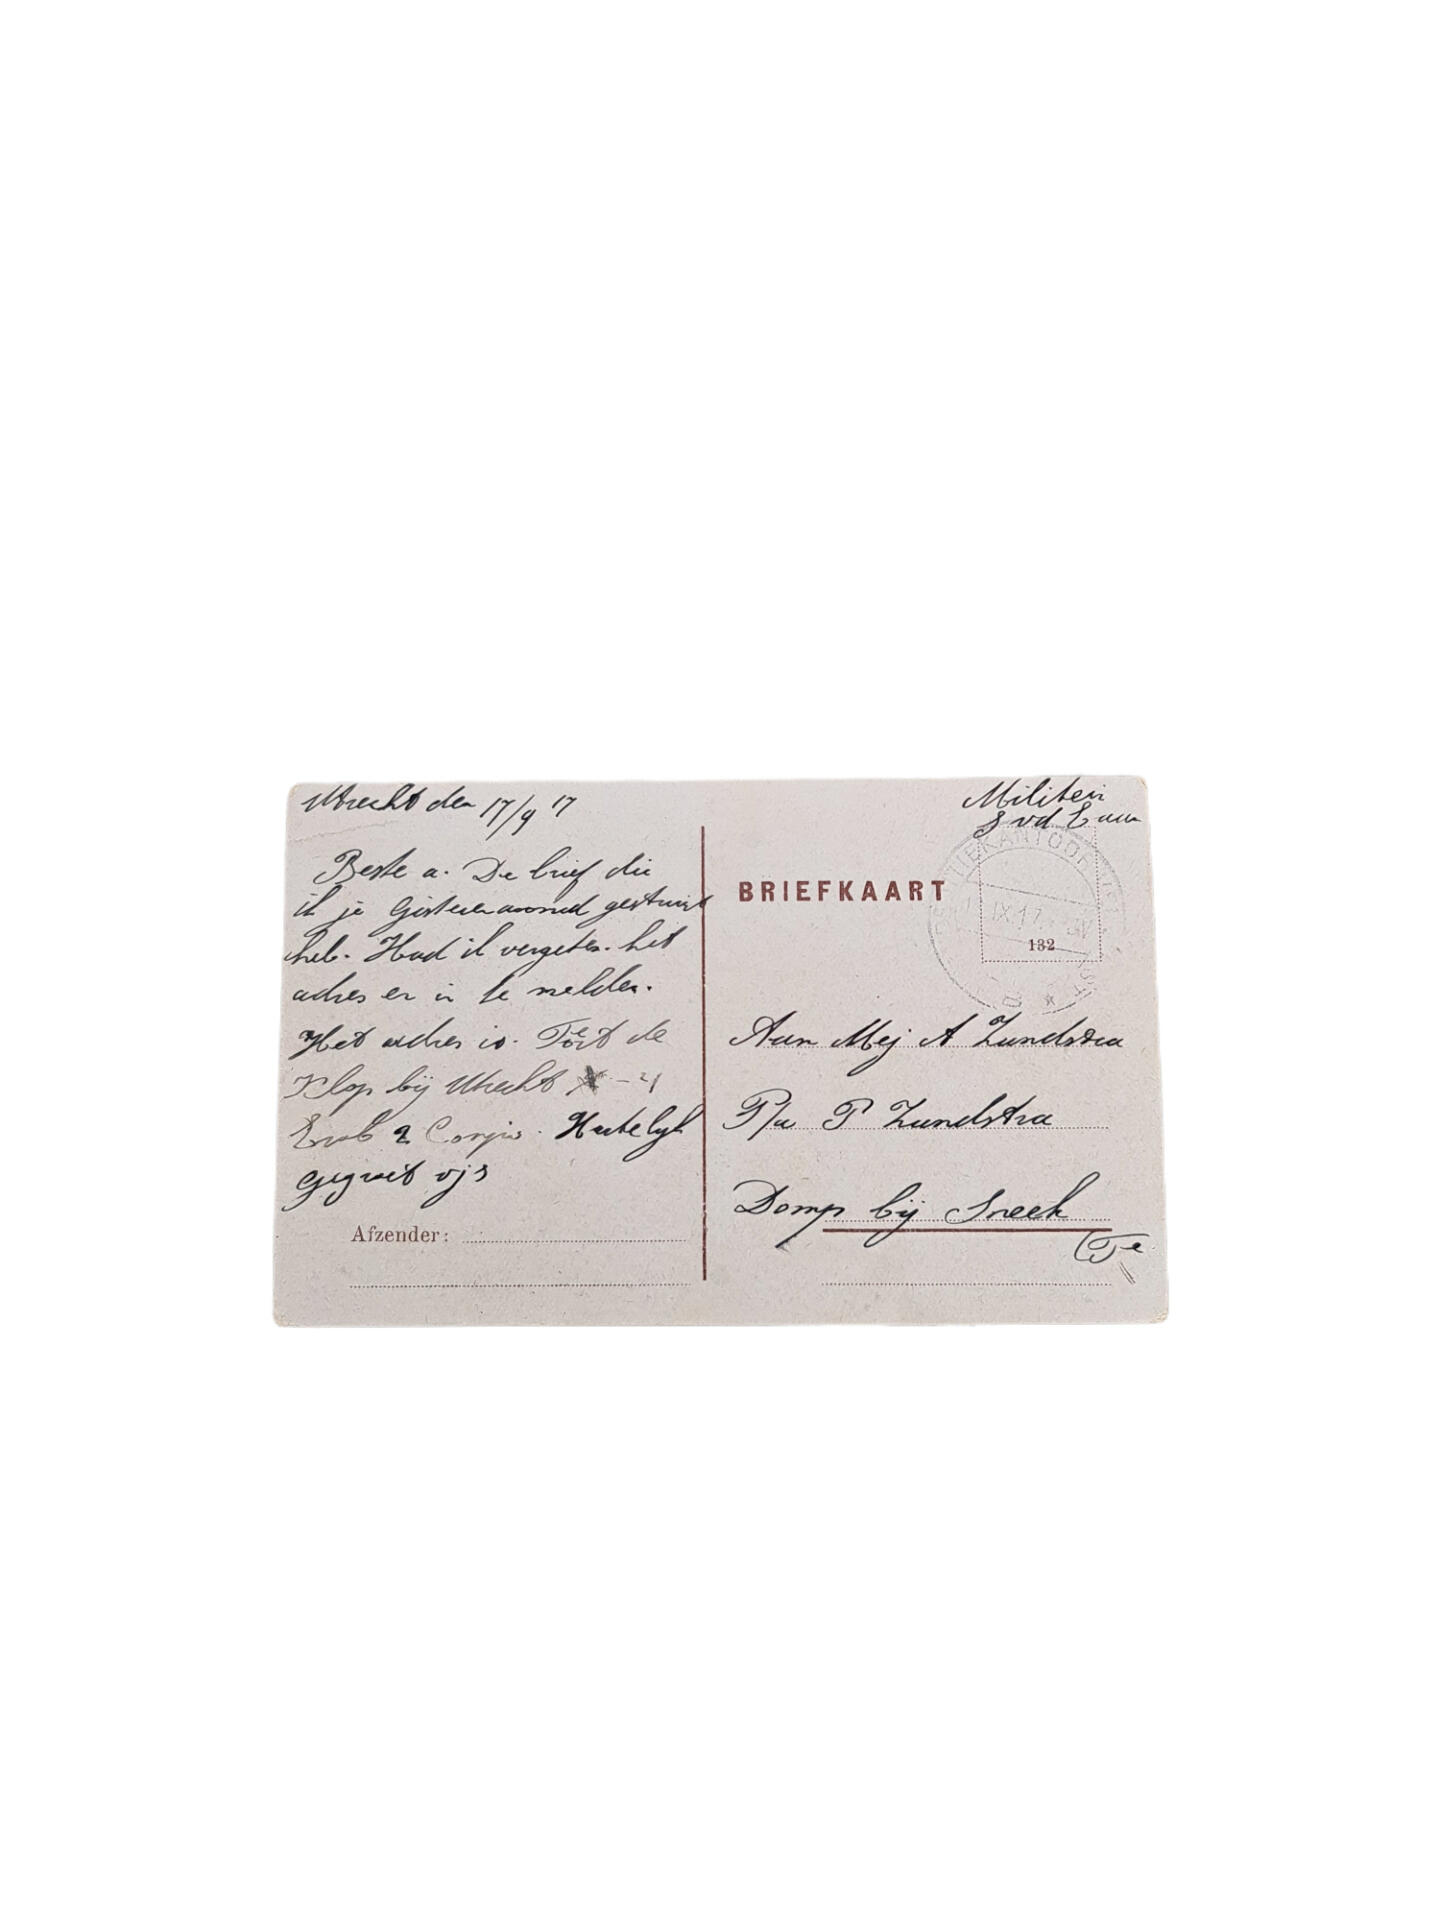 Utrecht den 17/9 17
Beste a. De brief die
ik je Gisterenavond gestuurt
heb. Had ik vergeten. het
adres er in te melden.
Het adres is. Fort de
Klop bij Utrecht
2 Hartelijk
gegroet
Afzender:
Militair
S vd
BRIEFKAART
IX.17
132
Aan Mej A Zandstra
P/a P Zandstra
Domp bij Sneek